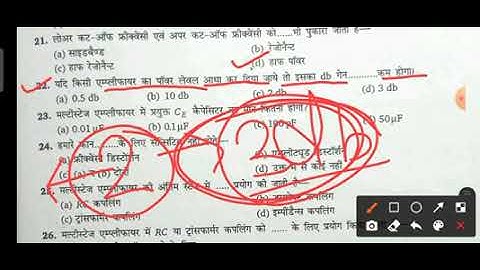 21. लोअर कट-ऑफ फ्रीक्वेंसी एवं अपर कट-ऑफ फ्रीक्वेंसी को......भी पुकारा जाता है—
(a) साइडबैण्ड (b) रेजोनैन्ट
(c) हाफ रेजोनैन्ट (d) हाफ पॉवर
22. यदि किसी एम्प्लीफायर का पॉवर लेवल आधा कर दिया जाये तो इसका db गेन..........कम होगा।
(a) 0.5 db (b) 10 db (c) 2 db (d) 3 db
23. मल्टीस्टेज एम्प्लीफायर में प्रयुक्त CE कैपेसिटर का मान कितना होगा?
(a) 0.01 µF (b) 0.1µF (c) 100 pF (d) 50 µF
24. हमारे कान.......के लिए सेन्सिटिव नहीं होते—
(a) फ्रीक्वेंसी डिस्टॉर्शन (b) एम्प्लीट्यूड डिस्टॉर्शन
(c) (a) व (b) दोनों (d) उक्त में से कोई नहीं
25. मल्टीस्टेज एम्प्लीफायर की अंतिम स्टेज में ..... प्रयोग की जाती है—
(a) RC कपलिंग कपलिंग
(c) ट्रांसफार्मर कपलिंग (d) इम्पीडैन्स कपलिंग
26. मल्टीस्टेज एम्प्लीफायर में RC या ट्रांसफार्मर कपलिंग को ...... के लिए प्रयोग किया